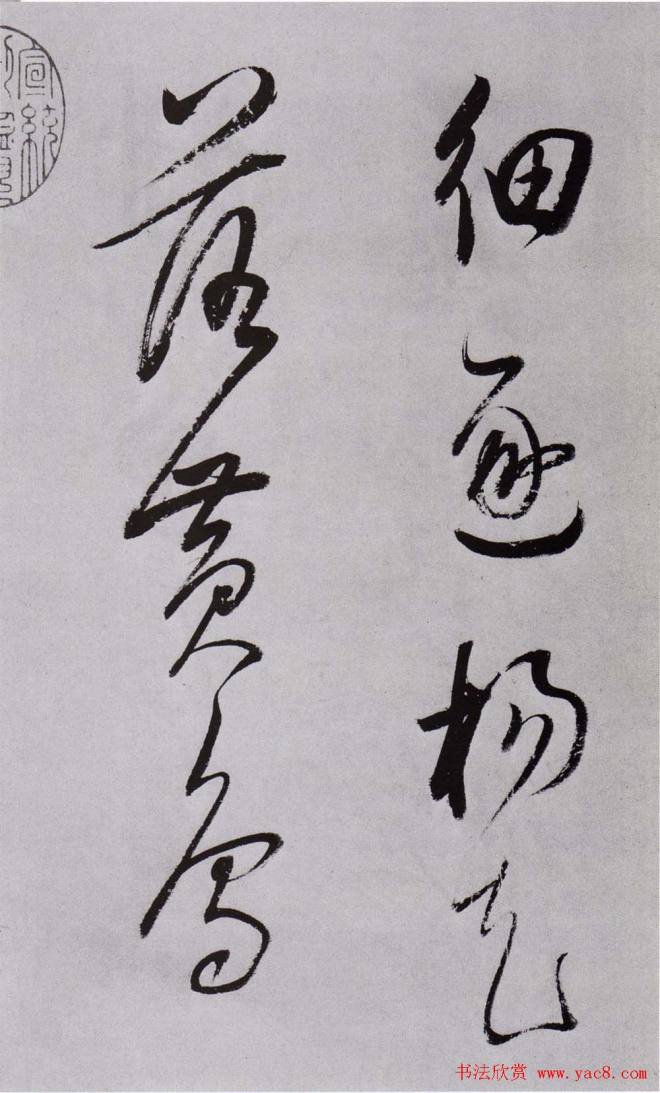 细逐杨花
落黄鸟
宣統
书法欣赏 www.yac8.com